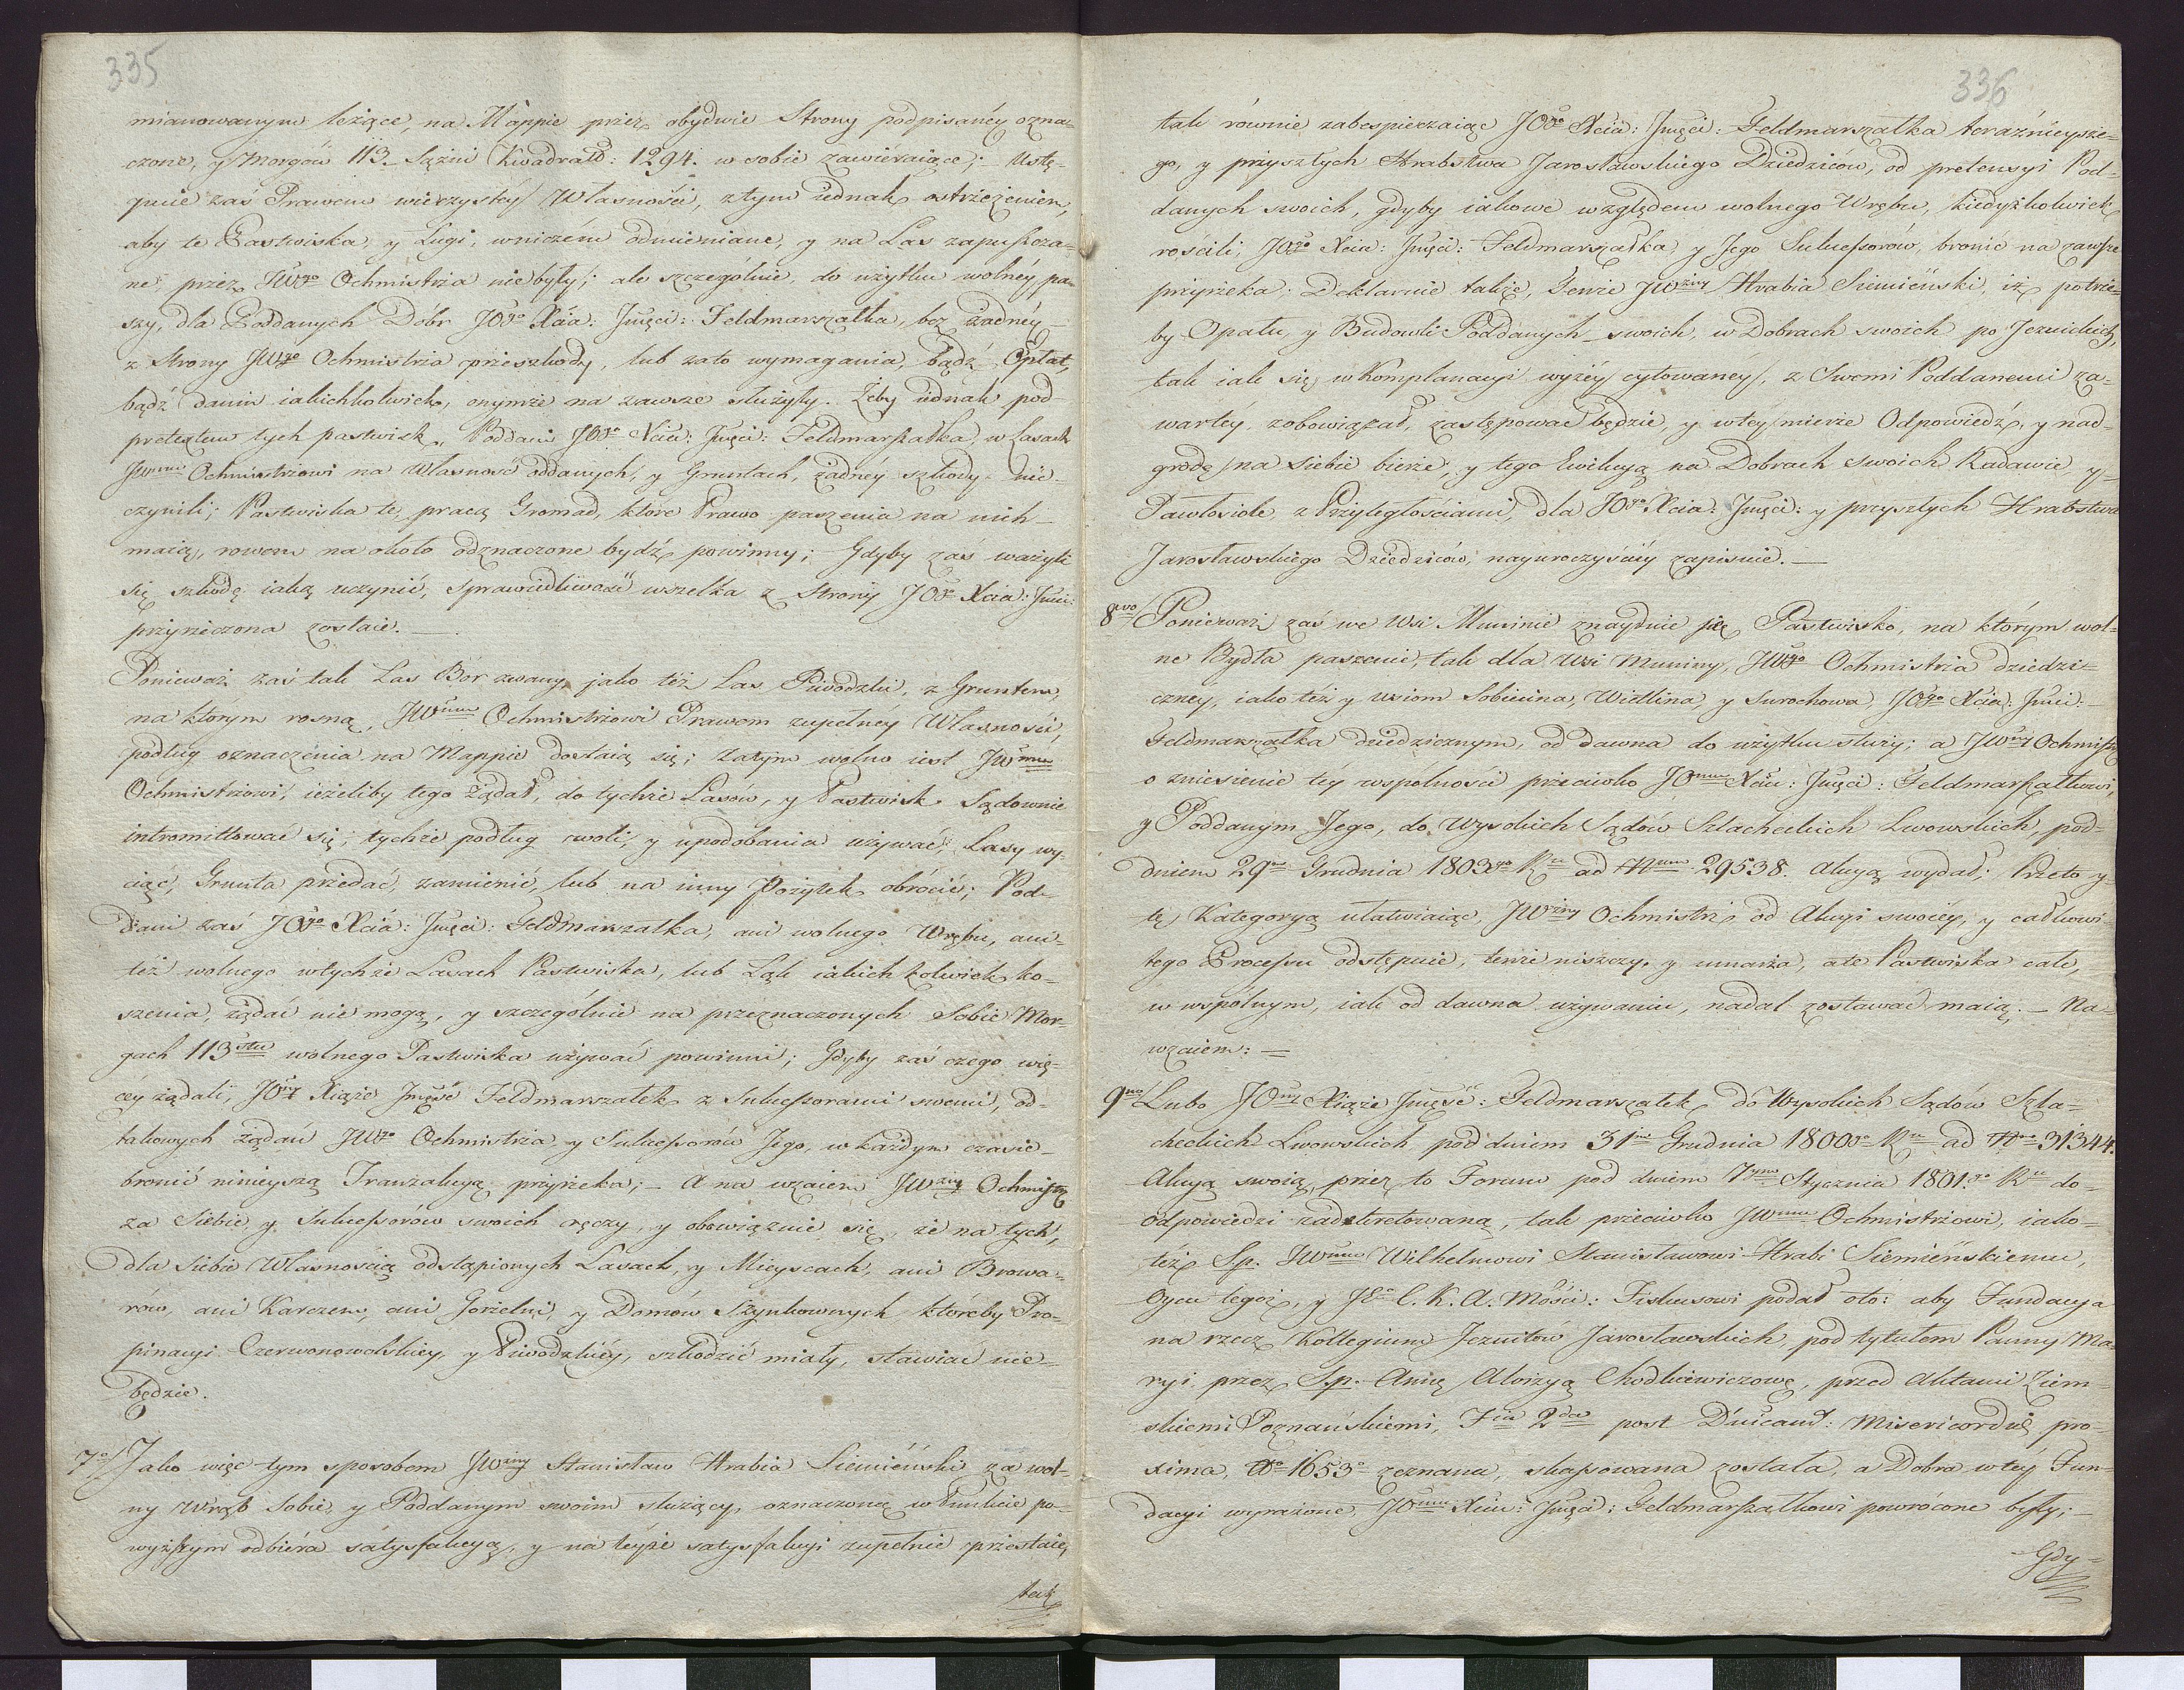 335
mianowanym leżące, na Mappie przez obydwie Strony podpisanéy ozna-
czone, y Morgów 113. Sążni Kwadrató: 1294. w sobie zawieraiące; Ustę-
puie zaś Prawem wieczystéy Własności, z tym iednak ostrzeżeniem,
aby te Pastwiska, y Ługi, wniczém odmieniane, y na Las zapuszcza-
ne przez JWgo Ochmistrza niebyły; ale szczególnie, do użytku wolnéy pa-
szy, dla Poddanych Dóbr JOgo Xcia: Jmęci: Feldmarszałka, bez żadnéy
z Strony JWgo Ochmistrza przeszkody, lub zato wymagania, bądź Opłat,
bądź danin iakichkolwiek, onymże na zawsze służyły. Żeby iednak pod
pretextem tych pastwisk, Poddani JOgo Xcia: Jmęci: Feldmarszałka, w Lasach
JWmu Ochmistrzowi na Własność oddanych, y Gruntach, żadnéy szkody nie-
czynili; Pastwiska te, pracą Gromad, które Prawo paszenia na nich
maią, rowem na około odznaczone bydź powinny; Gdyby zaś ważyli
się szkodę iaką uczynić, sprawiedliwość wszelka z Strony JOgo Xcia: Jmci:
przyrzeczona zostaie.
Ponieważ zaś tak Las Bór zwany, jako też Las Piwodzki, z Gruntem,
na którym rosną, JWmu Ochmistrzowi Prawem zupełney Własności,
podług oznaczenia na Mappie dostaią się; Zatym wolno iest JWmu
Ochmistrzowi, ieżeliby tego żądał, do tychże Lasów, y Pastwisk Sądownie
intromittować się, tychże podług woli, y upodobania używać, Lasy wy-
ciąć, Grunta przedać, zamienić, lub na inny Pożytek obrócić; Pod-
dani zaś JOgo Xcia: Jmęci: Feldmarszałka, ani wolnego Wrębu, ani
też wolnego wtychże Lasach Pastwiska, lub Łąk iakichkolwiek ko-
szenia, żądać nie mogą, y szczególnie na przeznaczonych Sobie Mor-
gach 113stu wolnego Pastwiska używać powinni; Gdyby zaś czego wię-
céy żądali, JOny Xiąże Jmęść Feldmarszałek z Sukcessorami swemi, od
takowych żądań JWgo Ochmistrza, y Sukcessorów Jego, w każdym czasie
bronić ninieyszą Tranzakcyą przyrzeka; A na wzaiem JWzny Ochmistrz
za Siebie, y Sukcessorów swoich ręczy, y obowiązuie się, że na tych,
dla Siebie Własnością odstąpionych Lasach, y Mieyscach, ani Browa-
rów, ani Karczem, ani Gorzelni, y Domów Szynkownych któreby Pro-
pinacyi Czerwonowolskiey, y Piwodzkiéy, szkodzić miały, stawiać nie-
będzie.
7o/ Jako więc tym sposobem JWzny Stanisław Hrabia Siemieński za wol-
ny Wrąb Sobie, y Poddanym swoim służący, oznaczoną w Punkcie po-
wyższym odbiéra satysfakcyą, y na téyże satysfakcyi zupełnie przestaie,
tak
336
tak równie zabespieczaiąc JOgo Xcia: Jmęci: Feldmarszałka teraźnieysze-
go, y przyszłych Hrabstwa Jarosławskiego Dziedziców, od pretensyi Pod-
danych swoich, gdyby iakowe względem wolnego Wrębu, kiedyżkolwiek
rościli; JOgo Xcia: Jmęci: Feldmarszałka, y Jego Sukcessorów, bronić na zawsze
przyrzeka; Deklaruie także, Tenże JWzny Hrabia Siemieński, iż potrze-
by Opału, y Budowli Poddanych swoich, w Dobrach swoich po Jezuickich,
tak iak się w Komplanacyi wyżéy cytowaney, z Swemi Poddanemi za-
wartéy, zobowiązał, zastępować będzie, y wtéy mierze Odpowiedź, y nad-
grodę na siebie bierze, y tego Ewikcyą na Dobrach swoich Radawie, y
Pawłosiole z Przyległościami, dla JOgo Xcia: Jmęci: y przyszłych Hrabstwa
Jarosławskiego Dziedziców, nayuroczyściéy zapisuie.
8vo/ Ponieważ zaś we Wsi Muninie znayduie się Pastwisko, na którym wol-
ne Bydła paszenie, tak dla Wsi Muniny, JWgo Ochmistrza dziedzi-
czney, iako też y wsiom Sobiecina, Wietlina, y Surochowa, JOgo Xcia: Jmci:
Feldmarszałka dziedzicznym, od dawna do użytku służy; a JWzny Ochmistrz
o zniesienie téy wspólności przeciwko JOmu Xciu: Jmęci: Feldmarszałkowi,
y Poddanym Jego, do Wysokich Sądów Szlacheckich Lwowskich, pod
dniem 29go Grudnia 1803go Ru ad Num 29538. Akcyą wydał; Przeto y
tę Kategoryą ułatwiaiąc, JWzny Ochmistrz od Akcyi swoiéy, y całkowi-
tego Processu odstępuie, tenże niszczy, y umarza, ate Pastwiska całe,
w wspólnym, iak od dawna używaniu, nadal zostawać maią. Na-
wzaiem:
9no/ Lubo JOny Xiąże Jmęść: Feldmarszałek, do Wysokich Sądów Szla-
checkich Lwowskich pod dniem 31mo Grudnia 1800go Ru ad No 31344.
Akcyą swoią, przez to Forum pod dniem 7ym Stycznia 1801.go Ru do
odpowiedzi zadekretowaną, tak przeciwko JWmu Ochmistrzowi, iako-
też Sp. JWmu Wilhelmowi Stanisławowi Hrabi Siemieńskiemu,
Oycu tegoż, y JEo C. K. A. Mości: Fiskusowi podał oto: aby Fundacya
na rzecz Kollegium Jezuitow Jarosławskich, pod tytułem Panny Ma-
ryi, przez Sp. Annę Aloizyą Chodkiewiczowę, przed Aktami Ziem-
skiemi Poznańskiemi, Fia 2da post Dnicam: Misericordiæ pro-
xima, Ao 1653o zeznana, skassowana została, a Dobra wtéy Fun-
dacyi wyrażone JOmu Xciu: Jmęci: Feldmarszałkowi powrócone były;
Gdy-